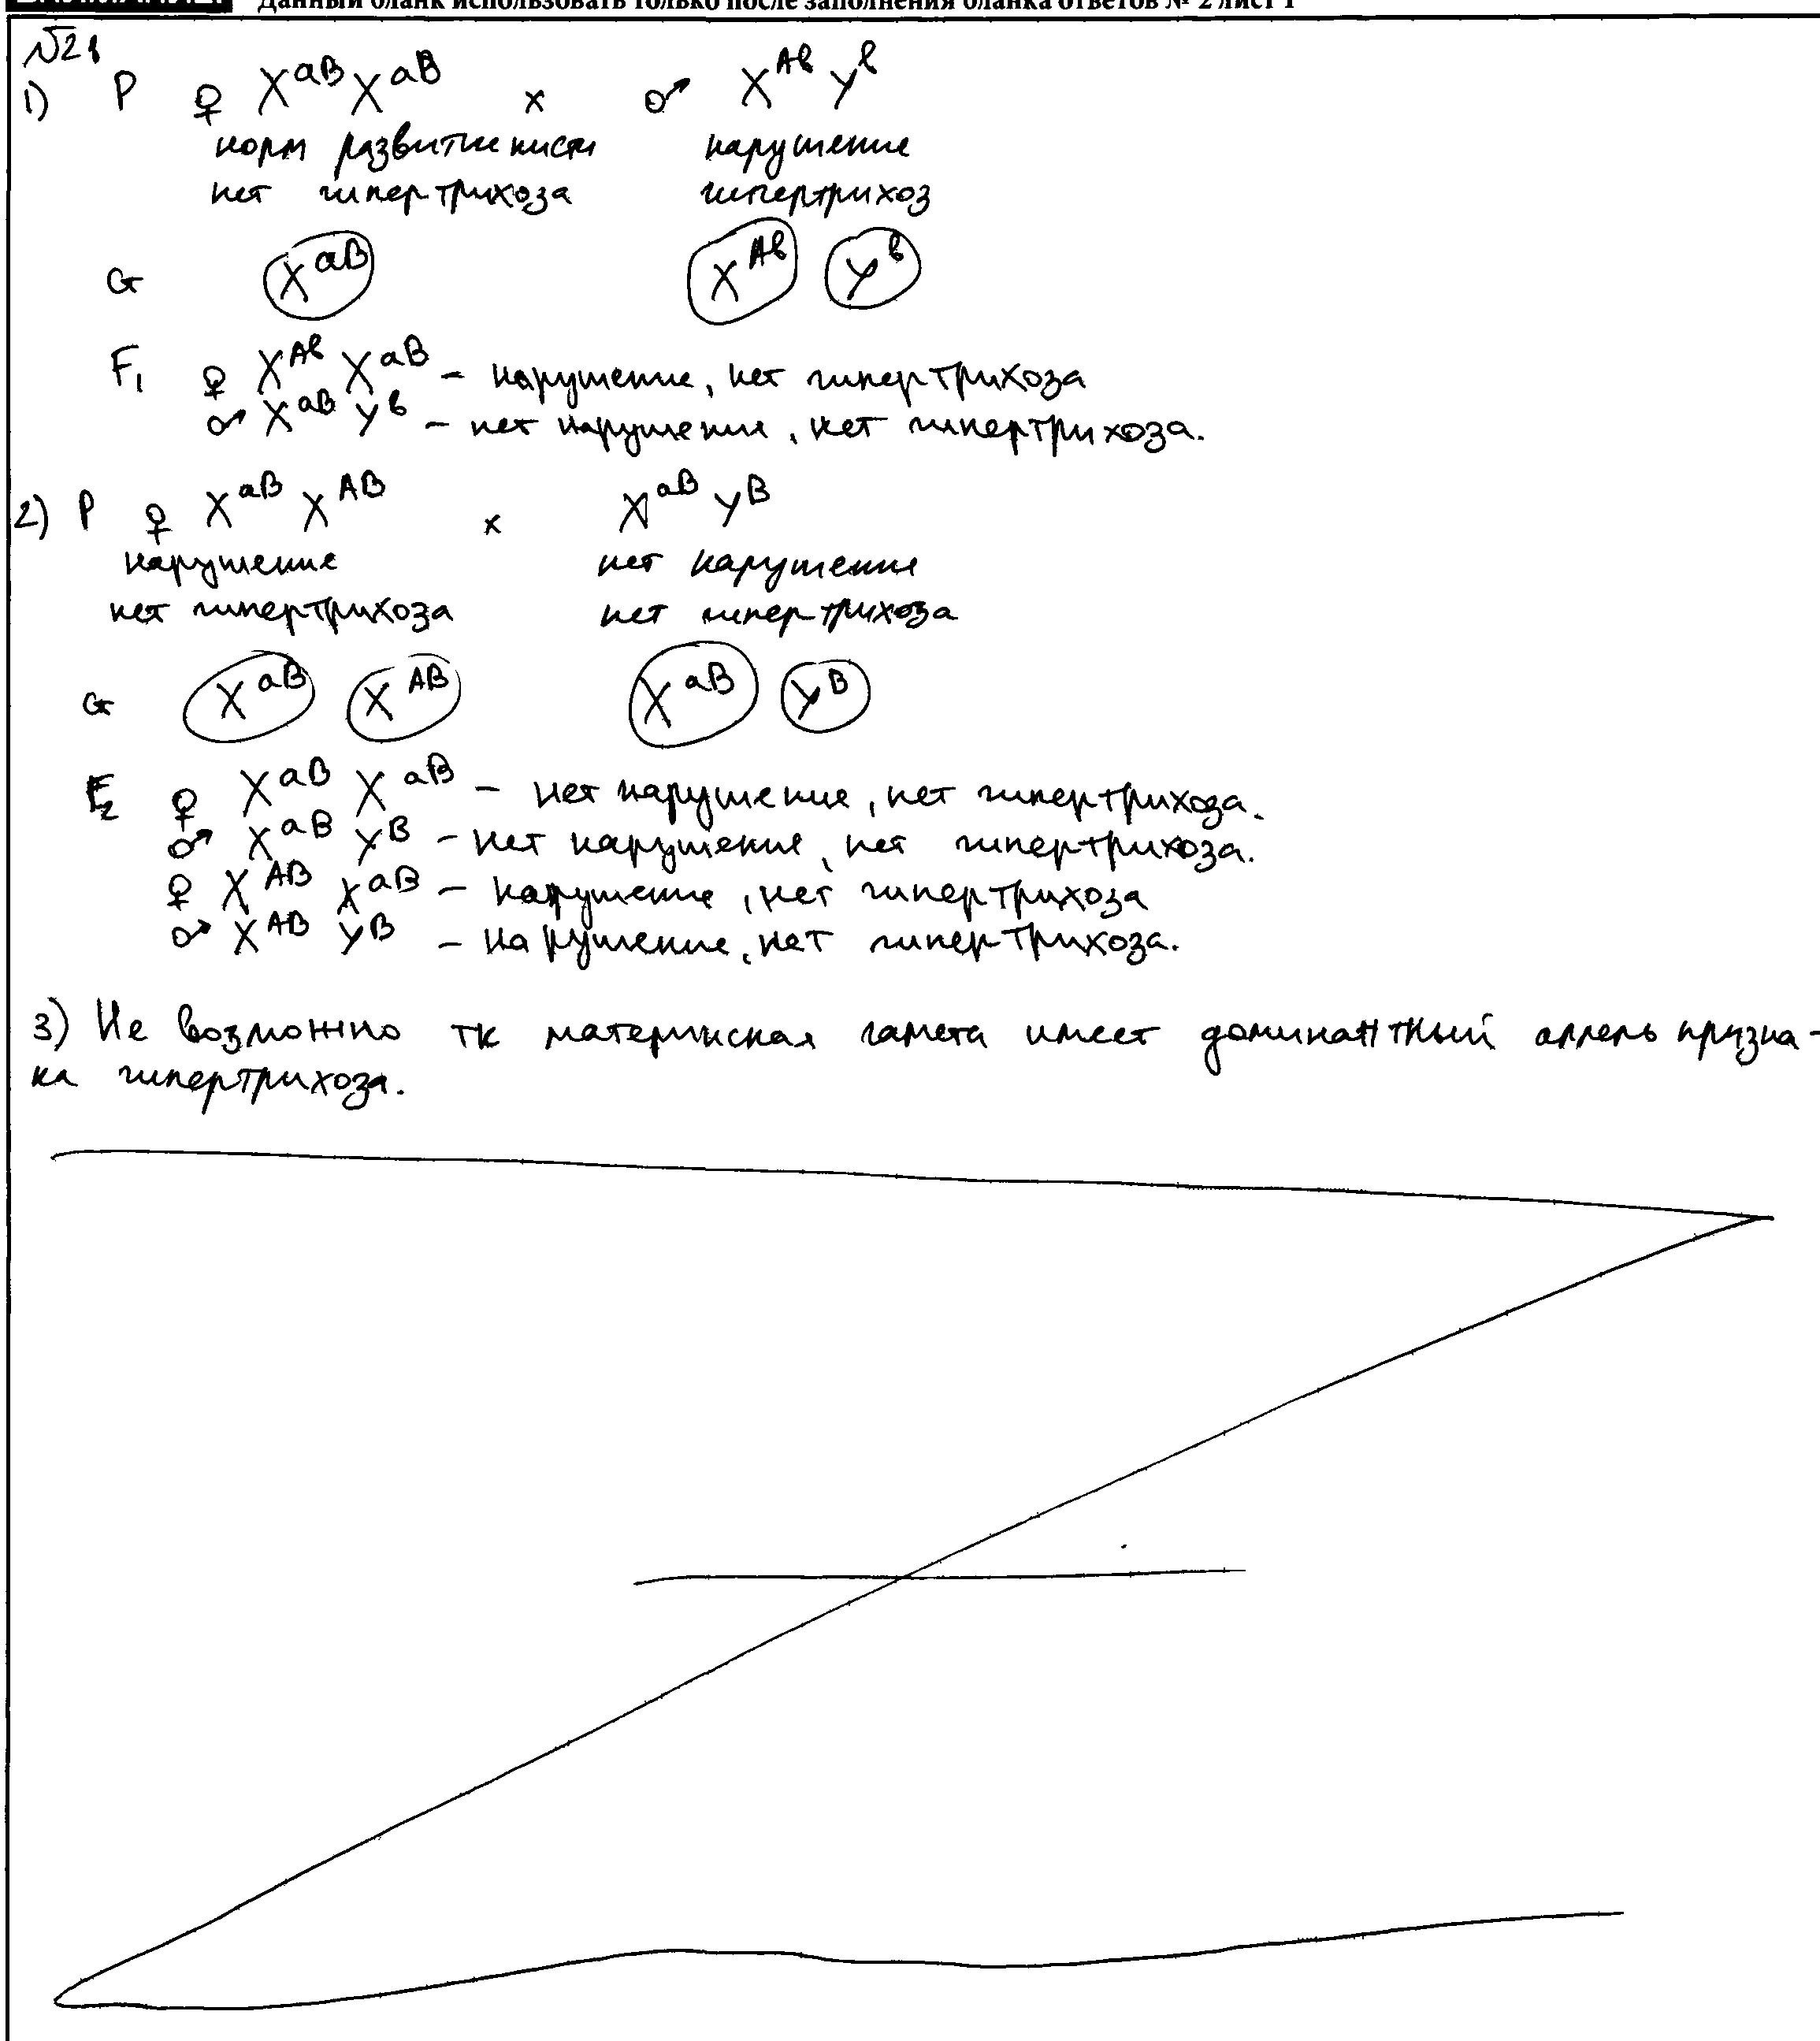 Данный бланк использовать только после заполнения бланка ответов № 2 лист 1
№28
1) P ♀ X^aB X^aB x ♂ X^Ab Y^b
норм развитие кисти нарушение
нет гипертрихоза гипертрихоз
G X^aB X^Ab Y^b
F1 ♀ X^Ab X^aB – нарушение, нет гипертрихоза
♂ X^aB Y^b – нет нарушения, нет гипертрихоза.
2) P ♀ X^aB X^AB x X^aB Y^B
нарушение нет нарушения
нет гипертрихоза нет гипертрихоза
G X^aB X^AB X^aB Y^B
F2 ♀ X^aB X^aB – нет нарушение, нет гипертрихоза.
♂ X^aB Y^B – нет нарушения, нет гипертрихоза.
♀ X^AB X^aB – нарушение, нет гипертрихоза
♂ X^AB Y^B – нарушение, нет гипертрихоза.
3) Не возможно тк материнская гамета имеет доминантный аллель призна-
ка гипертрихоза.